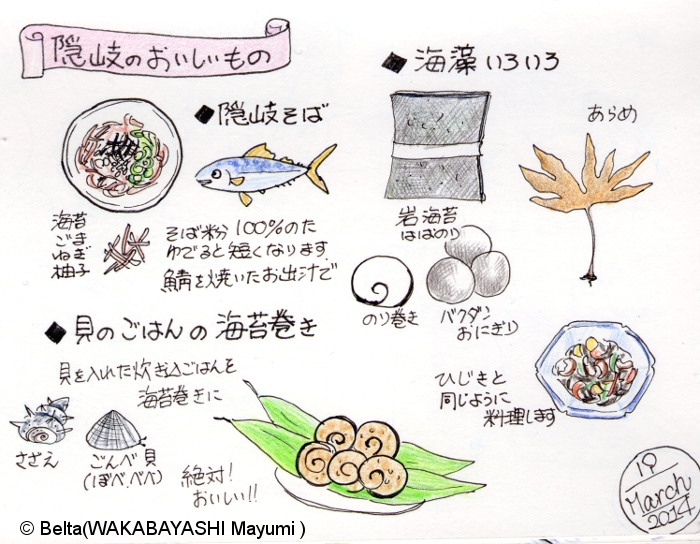 隠岐のおいしいもの
◆隠岐そば
海苔
ごま
ねぎ
柚子
そば粉100%のため
ゆでると短くなります
鯖を焼いたお出汁で
◆海藻いろいろ
あらめ
岩海苔
はばのり
のり巻き
バクダン
おにぎり
ひじきと
同じように
料理します
◆貝のごはんの海苔巻き
貝を入れた炊き込ごはんを
海苔巻きに
さざえ
ごんべ貝
(ぼべ、べべ)
絶対!
おいしい!!
19
March
2014
© Belta(WAKABAYASHI Mayumi )